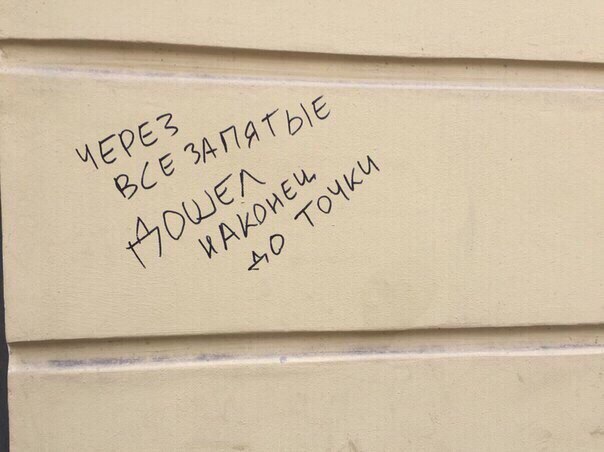 ЧЕРЕЗ
ВСЕ ЗАПЯТЫЕ
ДОШЕЛ
НАКОНЕЦ
ДО ТОЧКИ